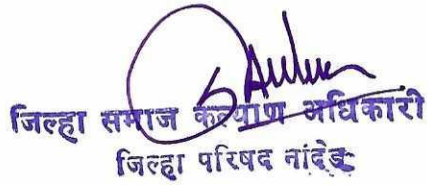 जिल्हा समाज कल्याण अधिकारी
जिल्हा परिषद नांदेड